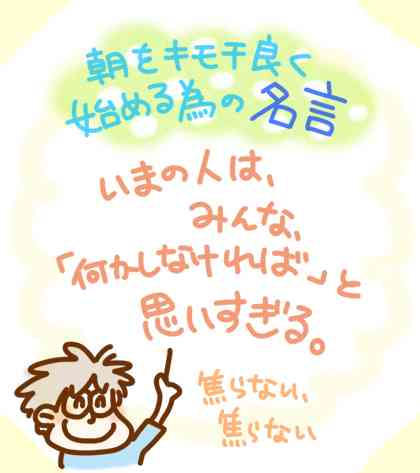 朝をキモチ良く
始める為の名言
いまの人は、
みんな、
「何かしなければ」と
思いすぎる。
焦らない、
焦らない